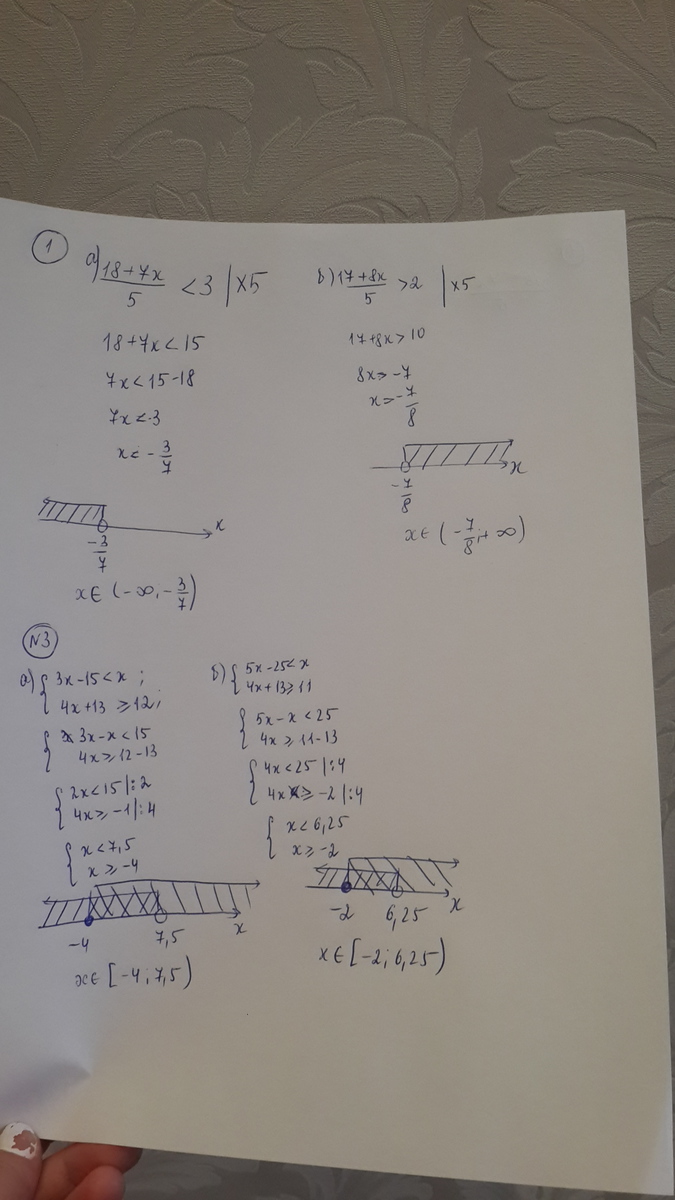 1
а) (18+7x)/5 < 3 |×5
18+7x < 15
7x < 15-18
7x < -3
x < -3/7
-3/7 x
x∈(-∞,-3/7)
б) (17+8x)/5 > 2 |×5
17+8x > 10
8x > -7
x > -7/8
-7/8 x
x∈(-7/8;+∞)
N3
а) { 3x-15 < x ;
4x+13 ≥ 12;
{ 3x-x < 15
4x ≥ 12-13
{ 2x < 15 |:2
4x ≥ -1 |:4
{ x < 7,5
x ≥ -4
-4 7,5 x
x∈[-4;7,5)
б) { 5x-25 < x
4x+13 ≥ 11
{ 5x-x < 25
4x ≥ 11-13
{ 4x < 25 |:4
4x ≥ -2 |:4
{ x < 6,25
x ≥ -2
-2 6,25 x
x∈[-2;6,25)